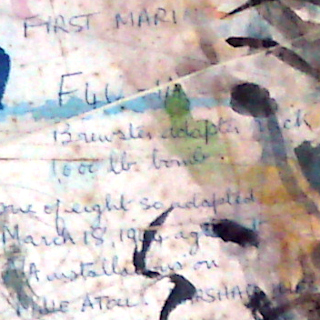 FIRST MARI
F4U
Brewster adapter
1,000 lb. bomb.
one of eight so adapted
March 18, 19
installations on
MILLE ATOLL. MARSHALL